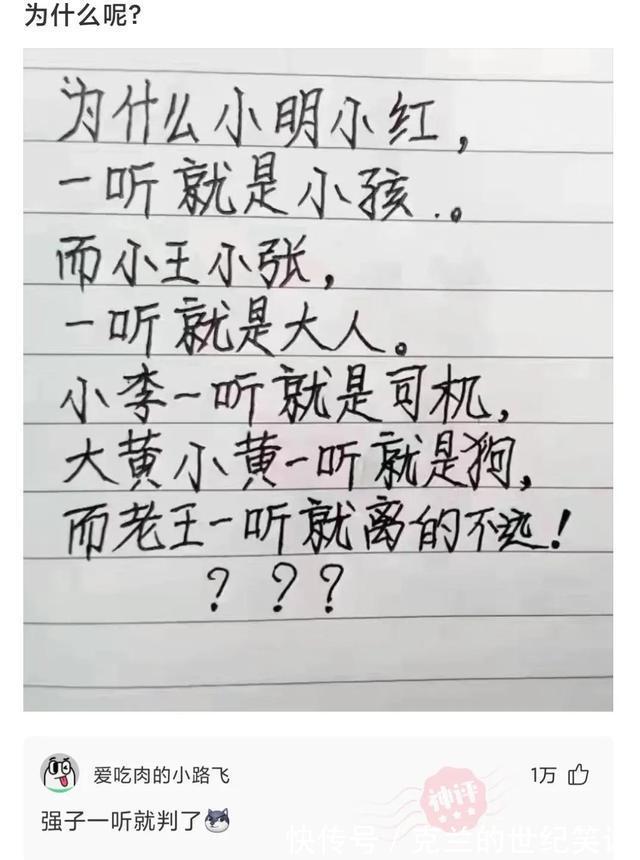 为什么呢?
为什么小明小红，
一听就是小孩.。
而小王小张，
一听就是大人。
小李一听就是司机，
大黄小黄一听就是狗，
而老王一听就离的不远！
？？？
爱吃肉的小路飞
1万
神评
强子一听就判了
快传号 / 克兰的世纪笑